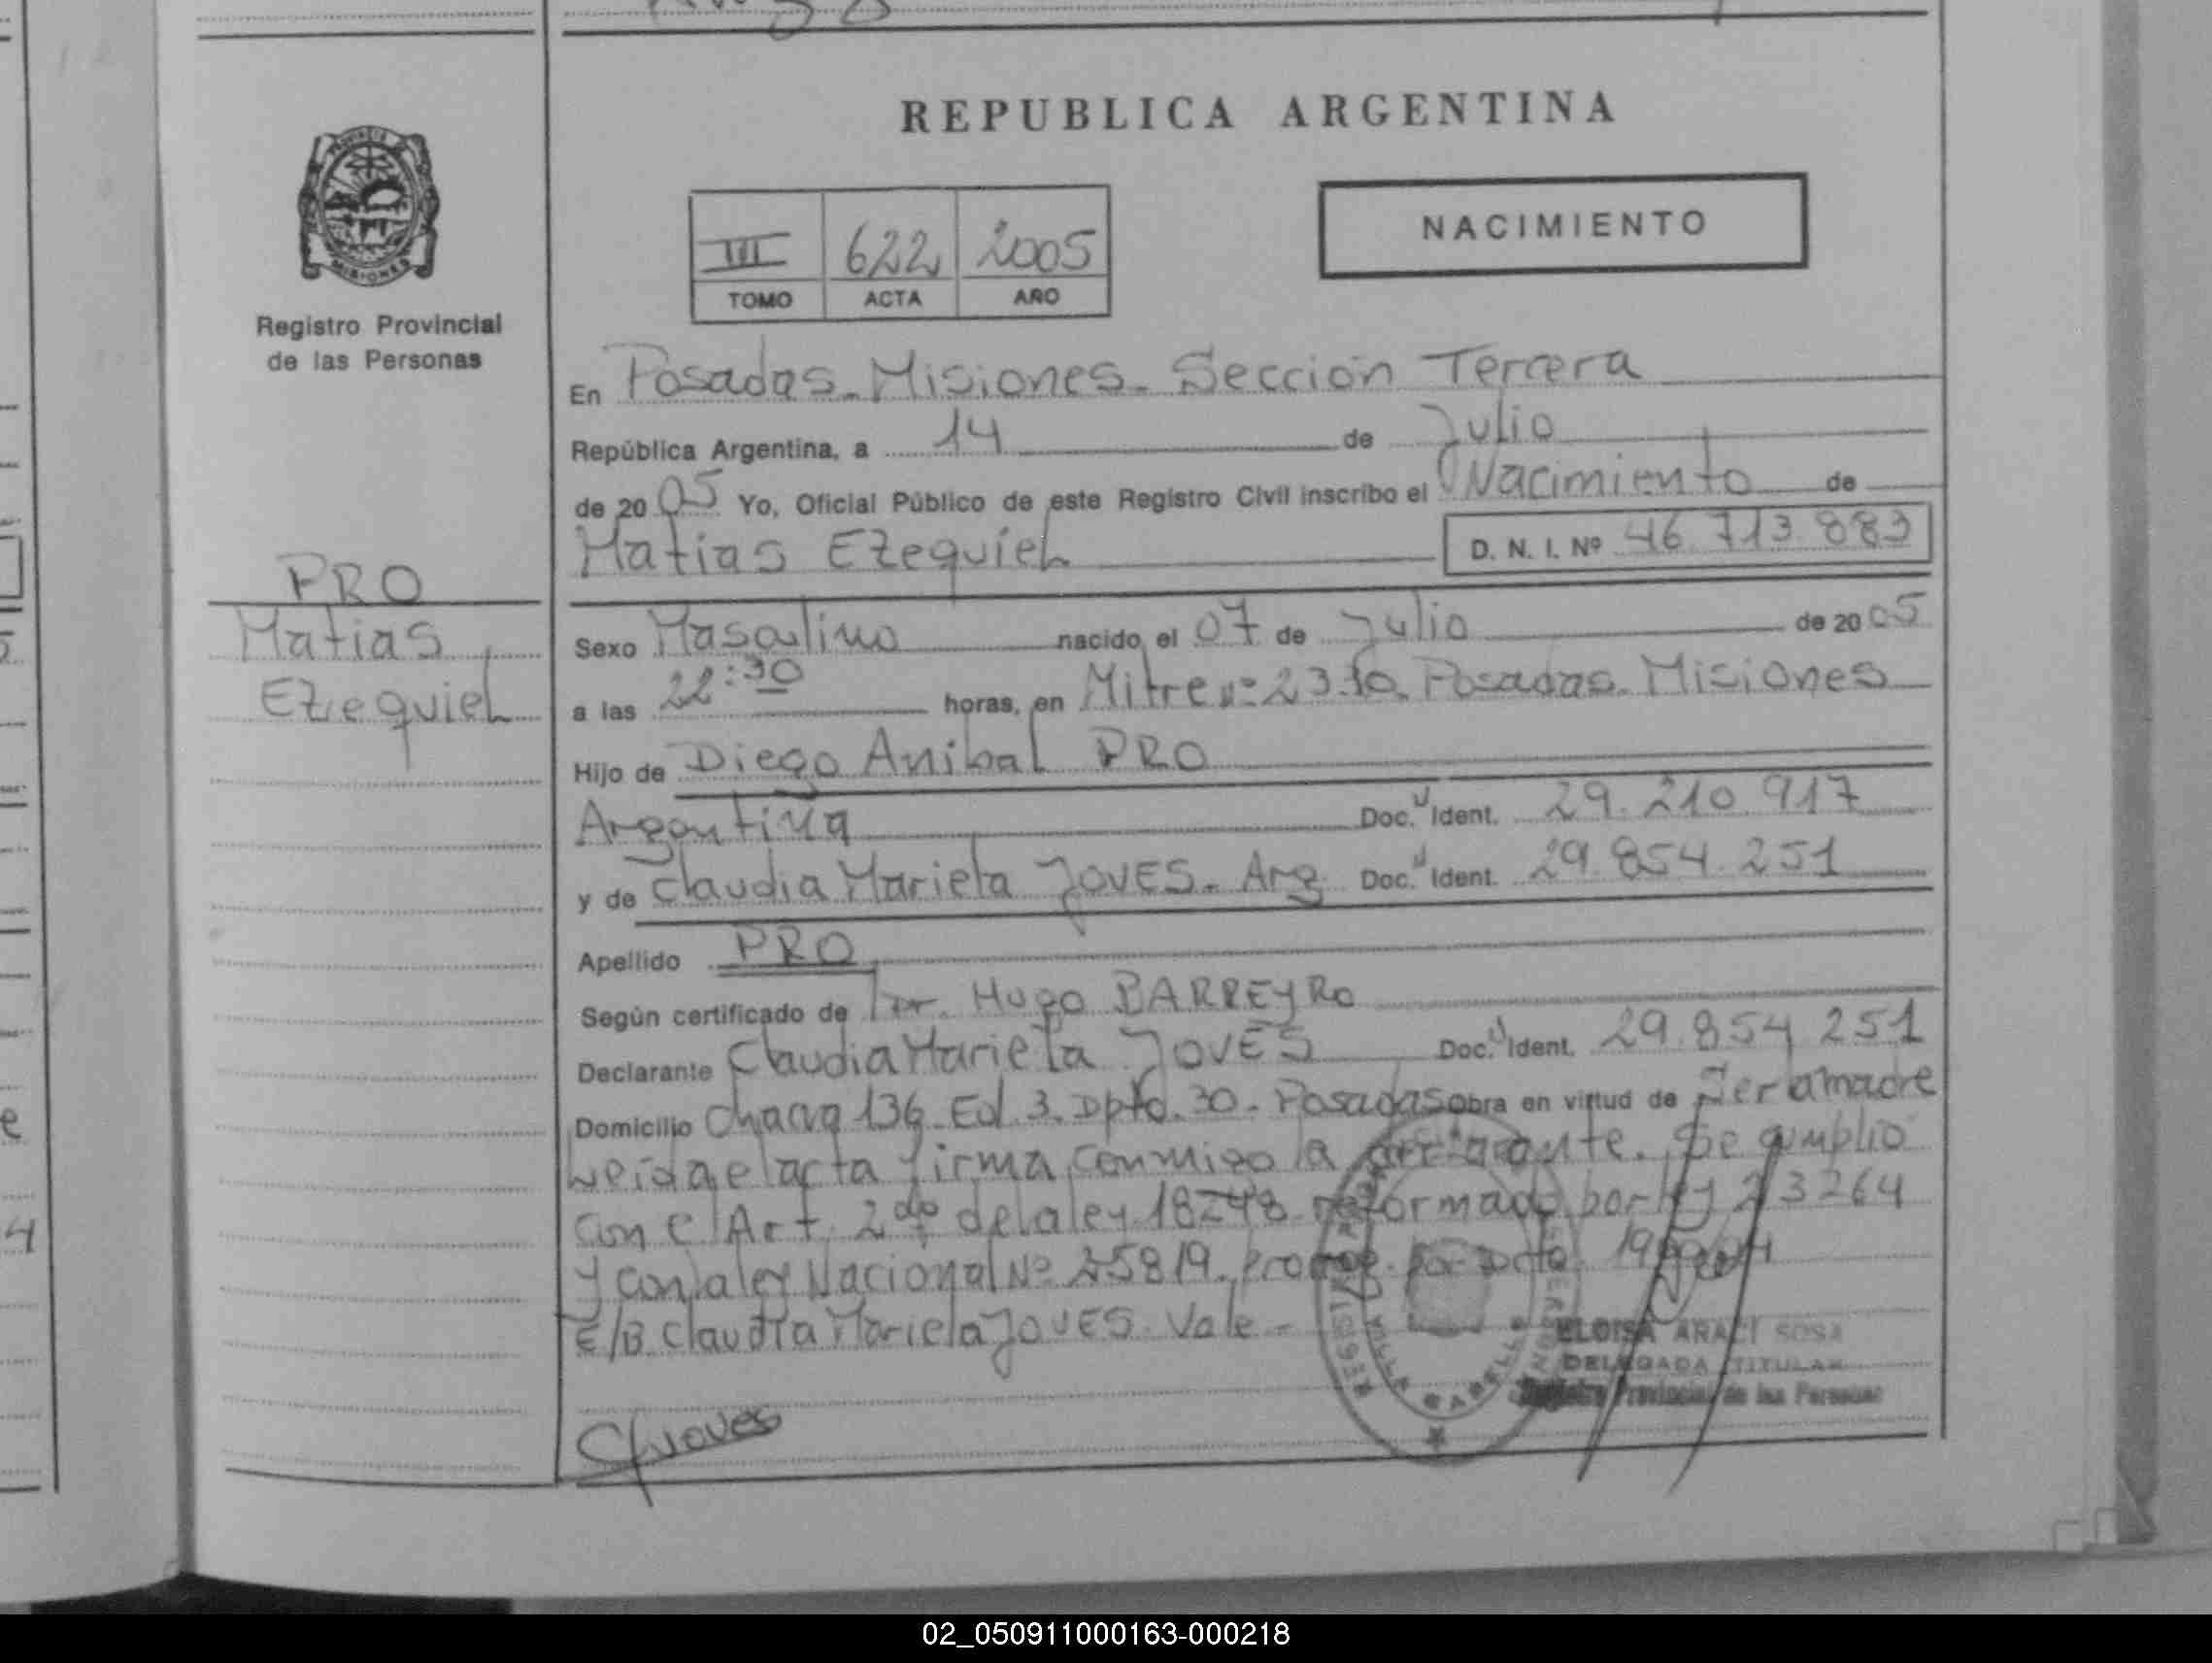 REPUBLICA ARGENTINA
PROVINCIA DE
MISIONES
Registro Provincial
de las Personas
III 622 2005
TOMO ACTA AÑO
NACIMIENTO
En Posadas-Misiones-Sección Tercera
República Argentina, a 14 de Julio
de 2005 Yo, Oficial Público de este Registro Civil inscribo el Nacimiento de
Matias EzequieL
D. N. I. Nº 46.713.883
PRO
Matias
EzequieL
Sexo Masculino nacido el 07 de Julio de 2005
a las 22:30 horas, en Mitre nº Posadas-Misiones
Hijo de Diego Anibal PRO
Argentina Doc. Ident. 29.210.917
y de Claudia Mariela JOVES-Arg Doc. Ident. 29.854.251
Apellido PRO
Según certificado de Dr. Hugo BARREYRO
Declarante Claudia Mariela JOVES Doc. Ident. 29.854 251
Domicilio Chacra 136 Ed.3.Dpto.30-Posadas obra en virtud de Ser la madre
Leida el acta firma conmigo la declarante. Se cumplio
con el Art. 2do de la ley 18248 reformado por ley 23264
y con la ley Nacional Nº 25819. por Dcto
E/B Claudia Mariela JOVES. Vale-
CJoves
ELOISA ARACI SOSA
DELEGADA TITULAR
Registro Provincial de las Personas
VILLA CABELLO
02_050911000163-000218